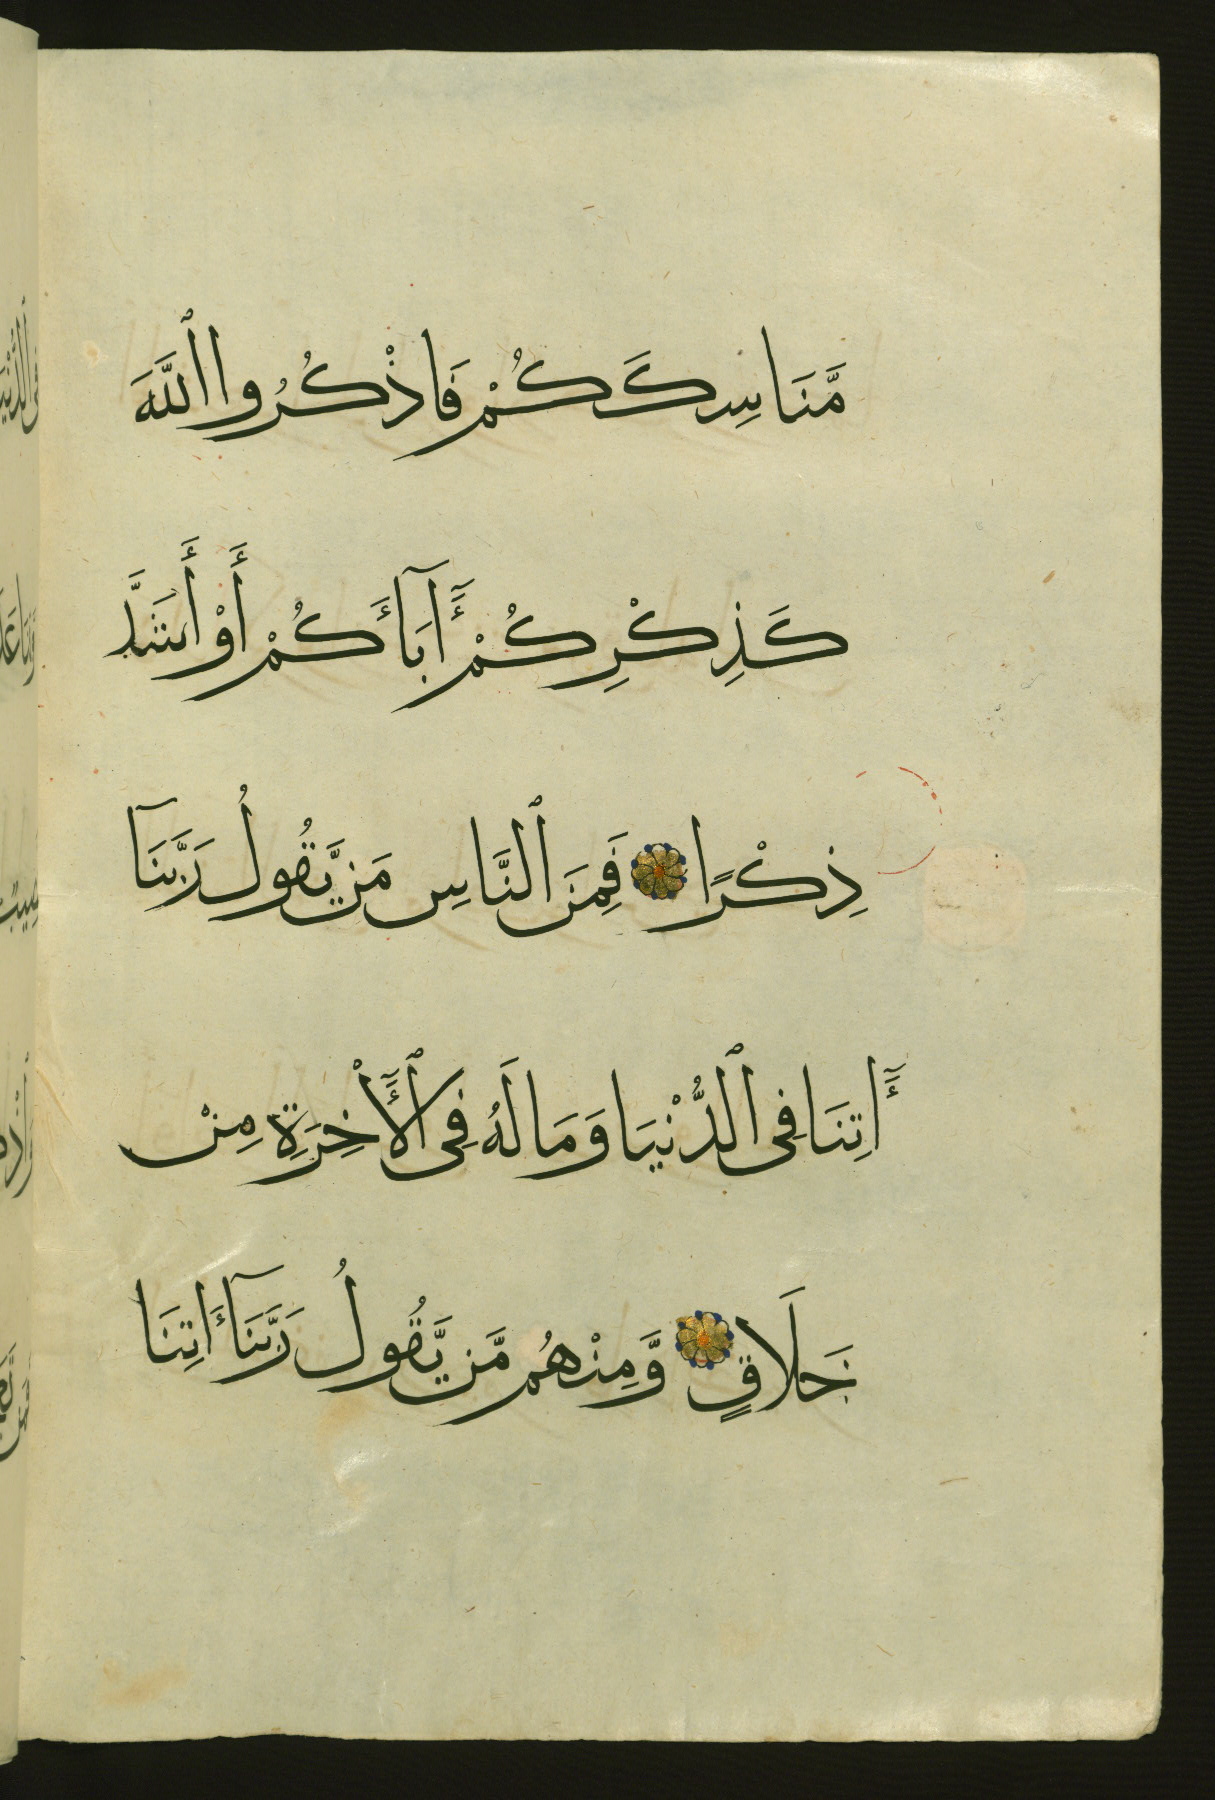 مَّنَاسِكَكُمْ فَاذْكُرُوا اللَّهَ
كَذِكْرِكُمْ ءَابَآءَكُمْ أَوْ أَشَدَّ
ذِكْرًا ۝ فَمِنَ ٱلنَّاسِ مَن يَّقُولُ رَبَّنَآ
ءَاتِنَا فِى ٱلدُّنْيَا وَمَا لَهُ فِى ٱلْأَخِرَةِ مِنْ
خَلَاقٍ ۝ وَّمِنْهُم مَّن يَّقُولُ رَبَّنَآ ءَاتِنَا